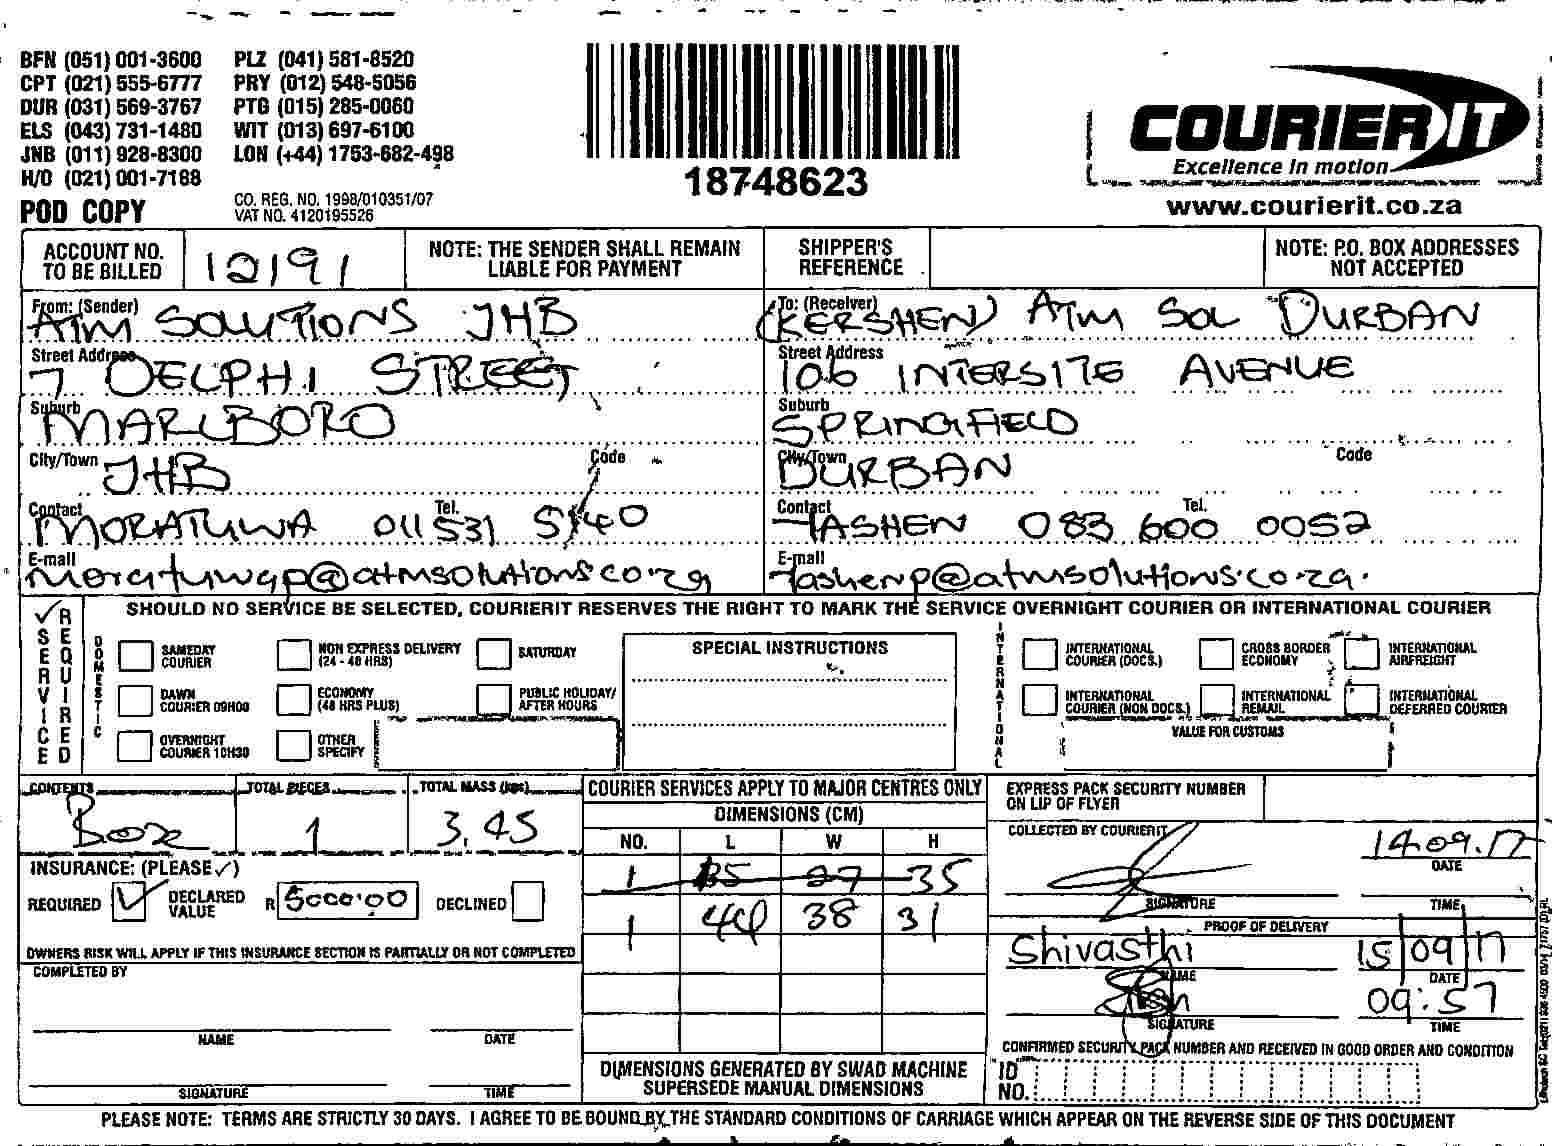 BFN (051) 001-3600 PLZ (041) 581-8520
CPT (021) 555-6777 PRY (012) 548-5056
DUR (031) 569-3767 PTG (015) 285-0060
ELS (043) 731-1480 WIT (013) 697-6100
JNB (011) 928-8300 LON (+44) 1753-682-498
H/O (021) 001-7188
POD COPY
CO. REG. NO. 1998/010351/07
VAT NO. 4120195526
18748623
COURIER IT
Excellence in motion
www.courierit.co.za
ACCOUNT NO. TO BE BILLED 12191
NOTE: THE SENDER SHALL REMAIN LIABLE FOR PAYMENT
SHIPPER'S REFERENCE
NOTE: P.O. BOX ADDRESSES NOT ACCEPTED
From: (Sender) ATM SOLUTIONS JHB
Street Address 7 DELPHI STREET
Suburb MARLBORO
City/Town JHB Code
Contact MORATUWA Tel. 011 531 5140
E-mail moratuwap@atmsolutions.co.za
To: (Receiver) (KERSHEN) ATM SOL DURBAN
Street Address 106 INTERSITE AVENUE
Suburb SPRINGFIELD
City/Town DURBAN Code
Contact TASHEN Tel. 083 600 0052
E-mail Tashenp@atmsolutions.co.za.
✓ SERVICE REQUIRED
SHOULD NO SERVICE BE SELECTED, COURIERIT RESERVES THE RIGHT TO MARK THE SERVICE OVERNIGHT COURIER OR INTERNATIONAL COURIER
DOMESTIC
SAMEDAY COURIER
NON EXPRESS DELIVERY (24 - 48 HRS)
SATURDAY
DAWN COURIER 09H00
ECONOMY (48 HRS PLUS)
PUBLIC HOLIDAY/ AFTER HOURS
OVERNIGHT COURIER 10H30
OTHER SPECIFY
SPECIAL INSTRUCTIONS
INTERNATIONAL
INTERNATIONAL COURIER (DOCS.)
CROSS BORDER ECONOMY
INTERNATIONAL AIRFREIGHT
INTERNATIONAL COURIER (NON DOCS.)
INTERNATIONAL REMAIL
INTERNATIONAL DEFERRED COURIER
VALUE FOR CUSTOMS
CONTENTS Box
TOTAL PIECES 1
TOTAL MASS (kgs) 3.45
INSURANCE: (PLEASE ✓)
REQUIRED ✓ DECLARED VALUE R 5000.00 DECLINED
OWNERS RISK WILL APPLY IF THIS INSURANCE SECTION IS PARTIALLY OR NOT COMPLETED
COMPLETED BY
NAME DATE
SIGNATURE TIME
COURIER SERVICES APPLY TO MAJOR CENTRES ONLY
DIMENSIONS (CM)
NO. L W H
1 35 27 35
1 44 38 31
DIMENSIONS GENERATED BY SWAD MACHINE SUPERSEDE MANUAL DIMENSIONS
EXPRESS PACK SECURITY NUMBER ON LIP OF FLYER
COLLECTED BY COURIERIT
14.09.17
DATE
SIGNATURE TIME
PROOF OF DELIVERY
Shivasthi 15/09/17
NAME DATE
09:57
SIGNATURE TIME
CONFIRMED SECURITY PACK NUMBER AND RECEIVED IN GOOD ORDER AND CONDITION
ID NO.
PLEASE NOTE: TERMS ARE STRICTLY 30 DAYS. I AGREE TO BE BOUND BY THE STANDARD CONDITIONS OF CARRIAGE WHICH APPEAR ON THE REVERSE SIDE OF THIS DOCUMENT